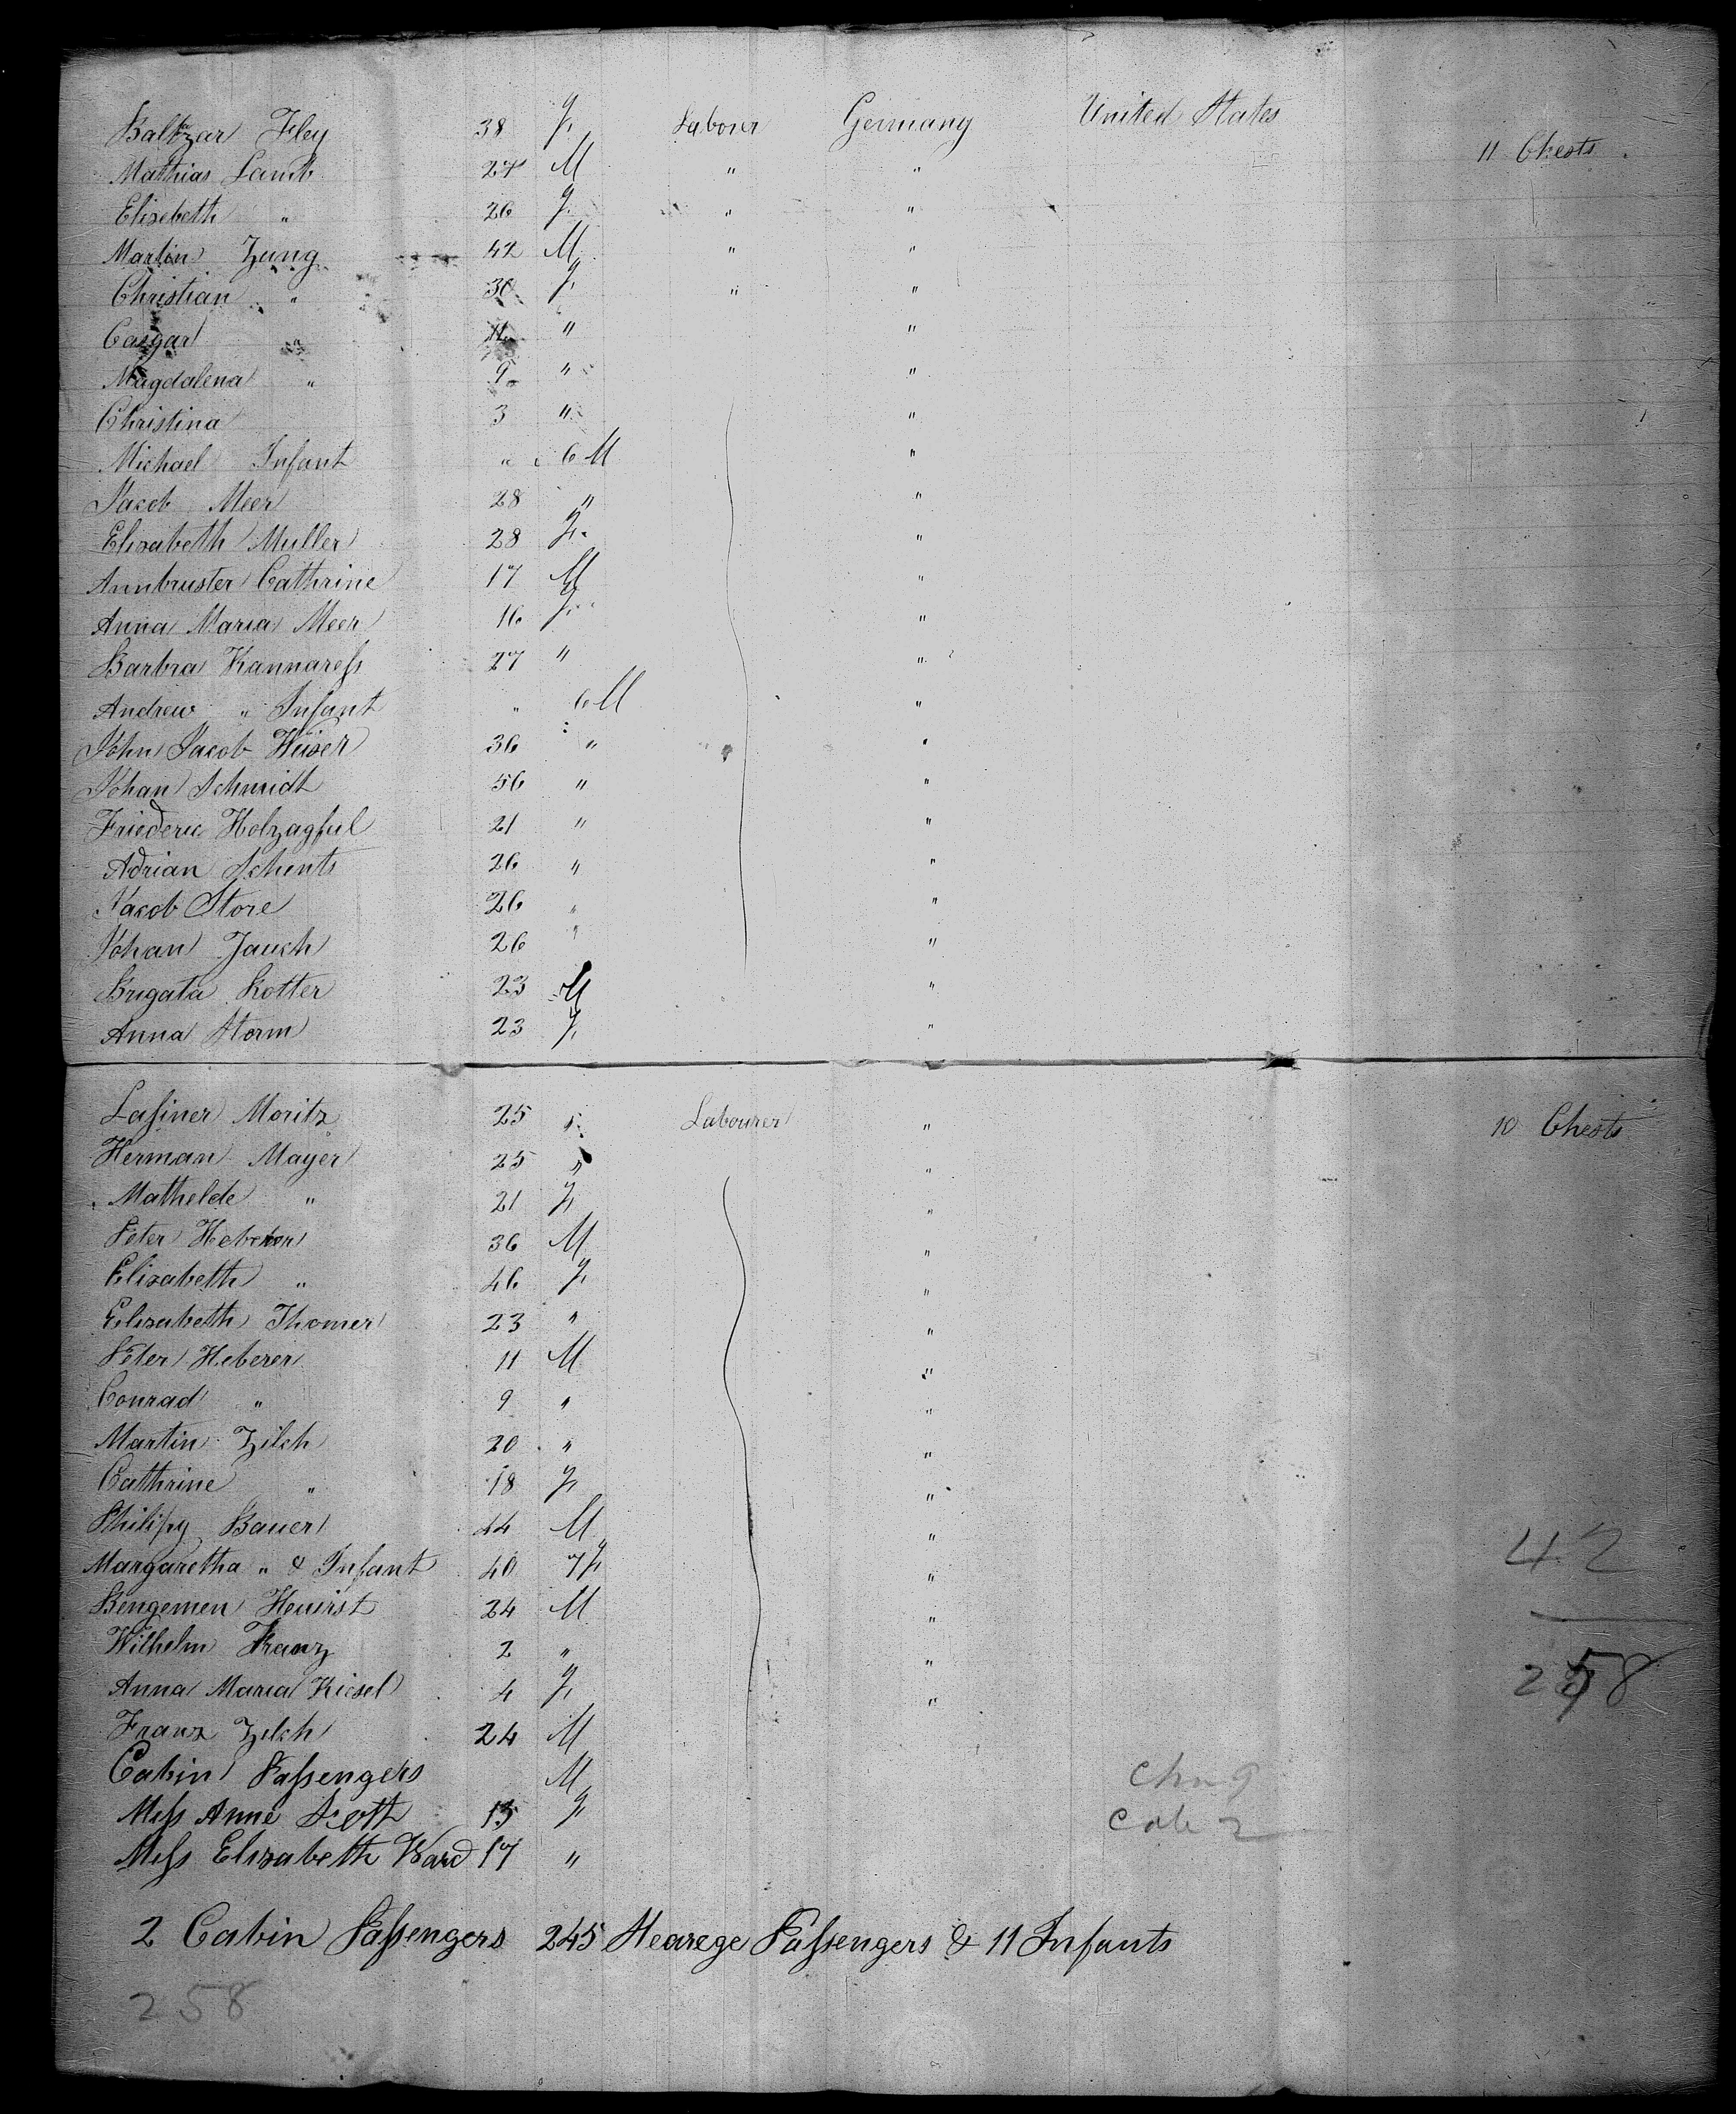 Baltzar Fley 38 F. Labourer Germany United States 11 Chests
Mathias Lamb 27 M " "
Elisebeth " 26 F. " "
Martin Zung 42 M " "
Christian " 30 F. " "
Casgar " 11 " "
Magdalena " 9 " "
Christina 3 " "
Michael Infant " 6 M "
Jacob Meer 28 " "
Elisabeth Muller 28 F. "
Annbruster Cathrine 17 M "
Anna Maria Meer 16 F. "
Barbra Kannaress 27 " "
Andrew " Infant " 6 M "
John Jacob Wüser 36 " "
Johan Schmidt 56 " "
Friederic Holzagful 21 " "
Adrian Schents 26 " "
Jacob Store 26 " "
Johan Jauch 26 " "
Brigata Rotter 23 M "
Anna Storm 23 F. "
Lassner Moritz 25 " Labourer " 10 Chests
Herman Mayer 25 " "
Mathelde " 21 F. "
Peter Heberer 36 M "
Elisabeth " 46 F. "
Elisabeth Thomer 23 " "
Peter Heberer 11 M "
Conrad " 9 " "
Martin Zilch 20 " "
Cathrine " 18 F. "
Philipy Bauer 44 M "
Margaretha " & Infant 40 F. " 42
Bengemen Heuirst 24 M "
Wilhelm Franz 2 " "
Anna Maria Kiesel 4 F. " 258
Franz Zilch 24 M
Cabin Passengers M
Miss Anne Scott 15 F. Cab 2
Miss Elizabeth Ward 17 "
2 Cabin Passengers 245 Stearege Passengers & 11 Infants
258